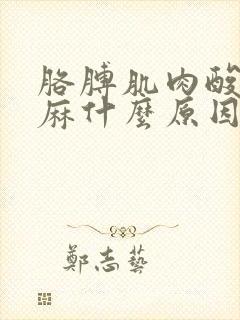 胳膊肌肉酸
麻什麼原因
鄭志藝